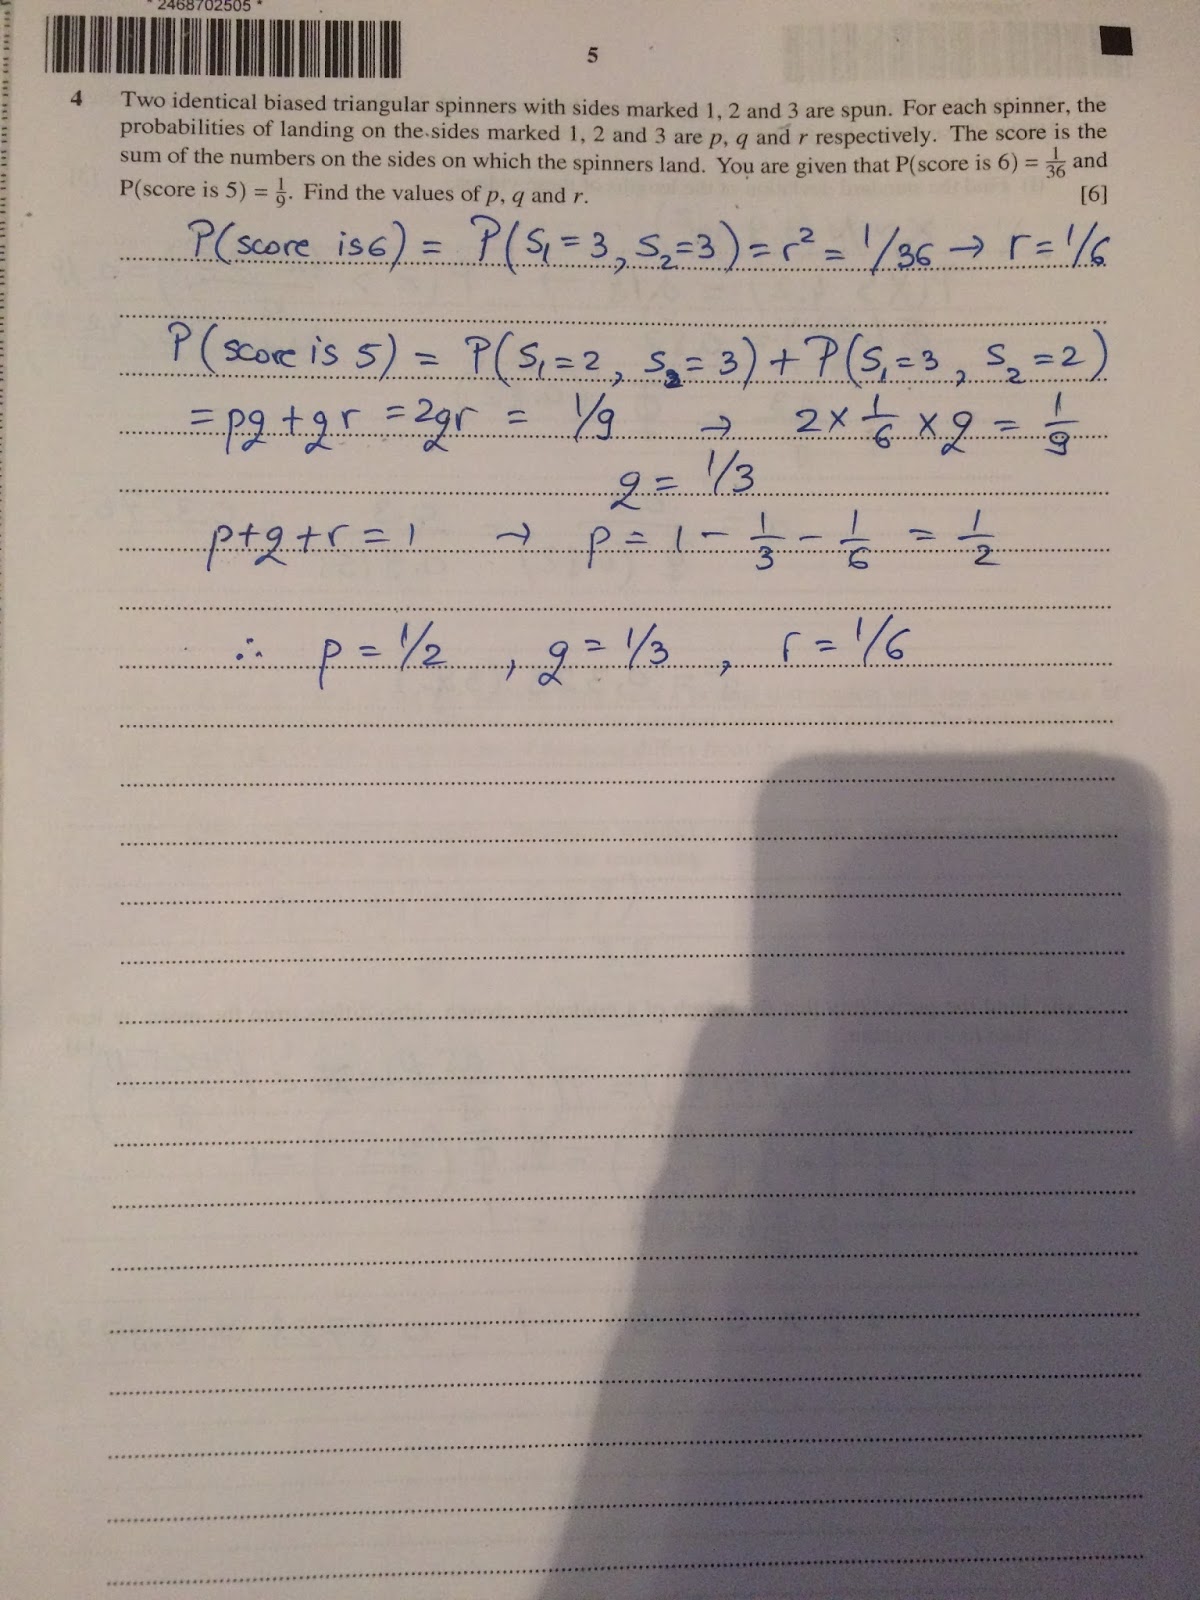 * 2468702505 *
5
4 Two identical biased triangular spinners with sides marked 1, 2 and 3 are spun. For each spinner, the
probabilities of landing on the sides marked 1, 2 and 3 are p, q and r respectively. The score is the
sum of the numbers on the sides on which the spinners land. You are given that P(score is 6) = 1/36 and
P(score is 5) = 1/9. Find the values of p, q and r. [6]
P(score is 6) = P(S₁ = 3, S₂ = 3) = r² = 1/36 → r = 1/6
P(score is 5) = P(S₁ = 2, S₂ = 3) + P(S₁ = 3, S₂ = 2)
= pq + qr = 2qr = 1/9 → 2 × 1/6 × q = 1/9
q = 1/3
p + q + r = 1 → p = 1 − 1/3 − 1/6 = 1/2
∴ p = 1/2 , q = 1/3 , r = 1/6